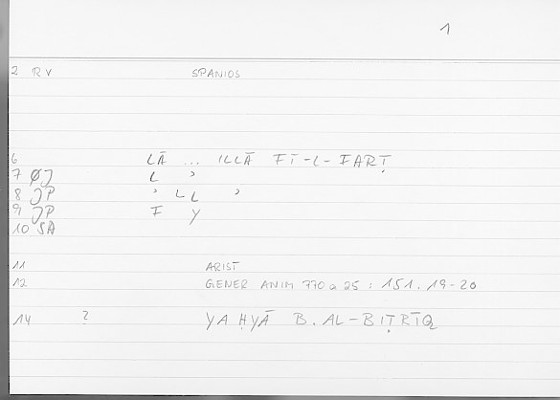 1
2 RV SPANIOS
6 LĀ ... ILLĀ FĪ-L-FARṬ
7 ØJ L ʾ
8 JP ʾ L L ʾ
9 JP F Y
10 SA
11 ARIST
12 GENER ANIM 770a25 : 151.19-20
14 ? YAḤYĀ B. AL-BIṬRĪQ